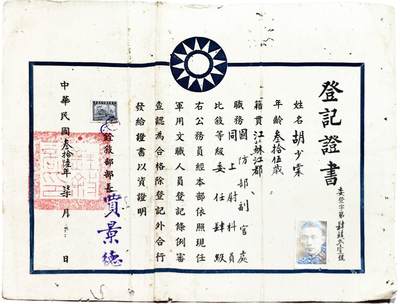 登記證書
委登字第肆號
姓名 胡少霖
年齡 叁拾伍歲
籍貫 江蘇江都
職務 國防部副官處
同上尉科員
比敘等級 委任肆級
右公務員經本部依照現任
軍用文職人員登記條例審
查認為合格除登記外合行
發給證書以資證明
銓敘部部長 賈景德
中華民國叁拾陸年柒月 日